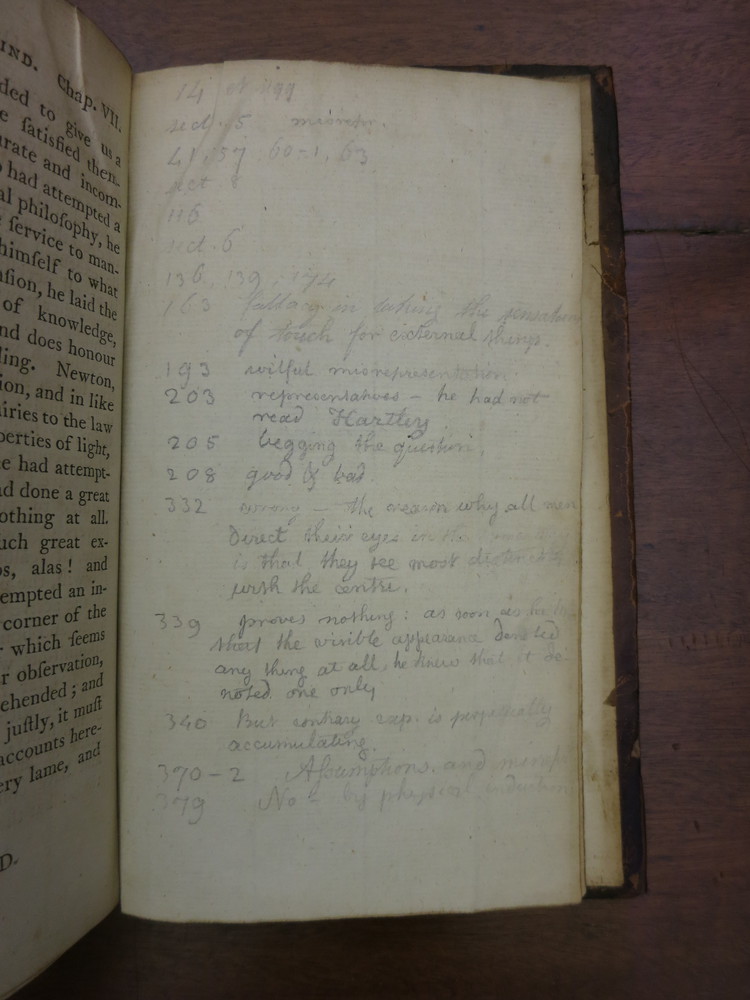 IND. Chap. VII.
ded to give us a
e ſatisfied them-
urate and incom-
o had attempted a
al philoſophy, he
e ſervice to man-
himſelf to what
nſion, he laid the
of knowledge,
nd does honour
ling. Newton,
ion, and in like
iries to the law
perties of light,
e had attempt-
d done a great
othing at all.
uch great ex-
os, alas! and
empted an in-
corner of the
which ſeems
r obſervation,
ehended; and
juſtly, it muſt
accounts here-
ery lame, and
D.
14
sect. 5
41, 57, 60-1, 63
sect 8
116
sect. 6
136, 139, 174
163 fallacy in taking the sensations
of touch for external things.
193 wilful misrepresentation.
203 representatives - he had not
read Hartley.
205 begging the question.
208 good & bad.
332 wrong - the reason why all men
direct their eyes in the
is that they see most
with the centre.
339 proves nothing: as soon as
that the visible appearance denoted
any thing at all, he knew that it de
noted one only
340 But contrary exp. is perpetually
accumulating.
370-2 Assumptions. and
379 No - by physical induction